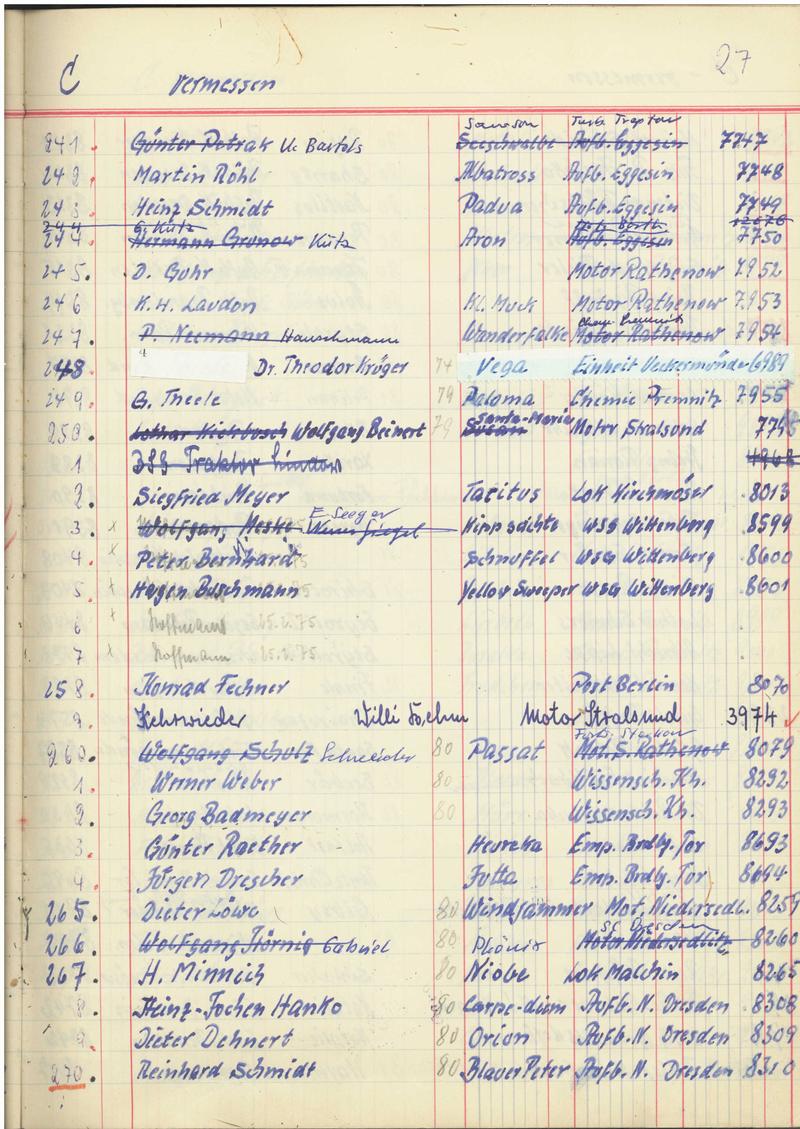 27
C vermessen
Samson Turb. Treptow
241. Günter Petrak U. Bartels Seeschwalbe Aufb. Eggesin 7747
242. Martin Röhl Albatross Aufb. Eggesin 7748
243. Heinz Schmidt Padua Aufb. Eggesin 7749
244 G. Kütz
244. Hermann Grunow Kütz Aron Aufb. Eggesin 7750
245. D. Guhr Motor Rathenow 7952
246 K.H. Laudon Kl. Muck Motor Rathenow 7953
Chem. Premnitz
247. P. Neumann Hauschmann Wanderfalke Motor Rathenow 7954
248 Dr. Theodor Krüger 74 Vega Einheit Ueckermünde 6989
249. G. Theele 79 Paloma Chemie Premnitz 7955
Santa-Maria
250. Lothar Kickbusch Wolfgang Beinert 79 Motor Stralsund
1. BSG Traktor Lindow 4968
2. Siegfried Meyer Tacitus Lok Kirchmöser 8013
E. Seeger
3. x Wolfgang Heske Kippsichte WSG Wittenberg 8599
4. x Peter Bernhardt Schnuffel WSG Wittenberg 8600
5. x Hagen Buschmann Yellow Sweeper WSG Wittenberg 8601
6 x Hoffmann 25.2.75
7 x Hoffmann 25.2.75
258. Konrad Fechner Post Berlin 8070
9. Kehrwieder Willi Motor Stralsund 3974
260. Wolfgang Schulz Schneider 80 Passat Mot. S. Rathenow 8079
1. Werner Weber 80 Wissensch. Kh. 8292
2. Georg Badmeyer 80 Wissensch. Kh. 8293
3. Günter Raether Heureka Emp. Brdbg. Tor 8693
4. Jürgen Drescher Jutta Emp. Brdbg. Tor 8694
265. Dieter Löwe 80 Windjammer Mot. Niedersedl. 8259
SC Dresden
266. Wolfgang Hörnig Gabriel 80 Phönix Motor Niedersedlitz 8260
267. H. Minnich 80 Niobe Lok Malchin 8265
8. Heinz-Jochen Hanko 80 Carpe-diem Aufb. N. Dresden 8308
9. Dieter Dehnert 80 Orion Aufb. N. Dresden 8309
270. Reinhard Schmidt 80 Blauer Peter Aufb. N. Dresden 8310